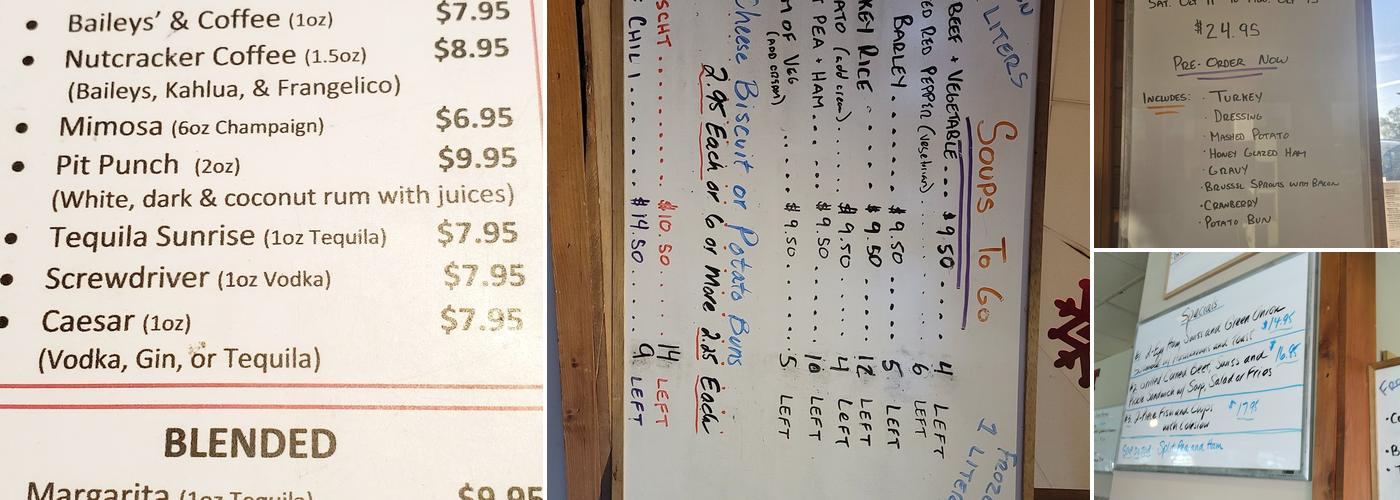 Baileys' & Coffee (1oz) $7.95
Nutcracker Coffee (1.5oz) $8.95
(Baileys, Kahlua, & Frangelico)
Mimosa (6oz Champaign) $6.95
Pit Punch (2oz) $9.95
(White, dark & coconut rum with juices)
Tequila Sunrise (1oz Tequila) $7.95
Screwdriver (1oz Vodka) $7.95
Caesar (1oz) $7.95
(Vodka, Gin, or Tequila)
BLENDED
Margarita (1oz Tequila) $9.95
LITERS
SOUPS To Go
BEEF + VEGETABLE... $9.50.... 4 LEFT
RED PEPPER (vegetarian) ........ 6 LEFT
BARLEY....... $9.50..... 5 LEFT
RICE...... $9.50.... 12 LEFT
(add cream).... $9.50.... 4 LEFT
PEA + HAM.... $9.50.... 10 LEFT
OF VEG ..... $9.50..... 5 LEFT
(ADD CREAM)
Cheese Biscuit or Potato Buns
2.95 Each or 6 or More 2.25 Each
........ $10.50..... 14 LEFT
CHILI........ $14.50.... 9 LEFT
$24.95
PRE-ORDER NOW
INCLUDES: · TURKEY
· DRESSING
· MASHED POTATO
· HONEY GLAZED HAM
· GRAVY
· BRUSSL SPROUTS WITH BACON
· CRANBERRY
· POTATO BUN
Specials
Ham Swiss and Green Onion $14.95
and Toast
#2 Grilled Corned Beef, Swiss and $16.95
Pickle Sandwich w/ Soup, Salad or Fries
#3 2-Piece Fish and Chips $17.95
with Coleslaw
Split Pea and Ham